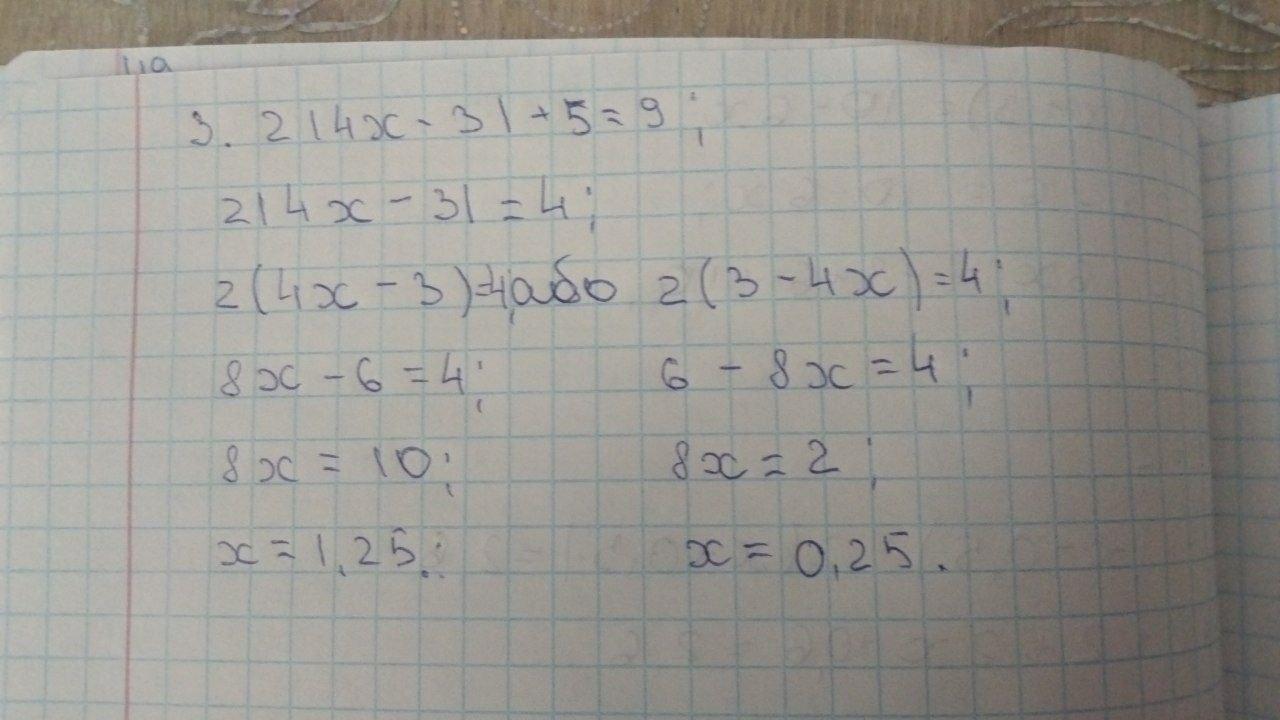 3. 2|4x - 3| + 5 = 9;
2|4x - 3| = 4;
2(4x - 3) = 4; або 2(3 - 4x) = 4;
8x - 6 = 4; 6 - 8x = 4;
8x = 10; 8x = 2;
x = 1,25. x = 0,25.